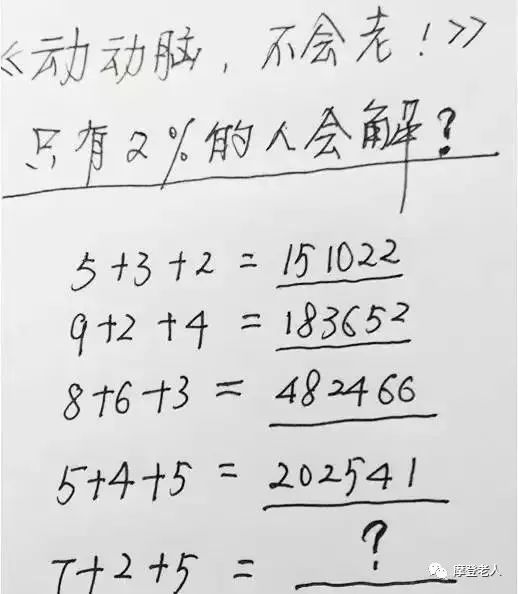 《动动脑，不会老！》
只有2%的人会解？
5+3+2 = 151022
9+2+4 = 183652
8+6+3 = 482466
5+4+5 = 202541
7+2+5 = ?
摩登老人